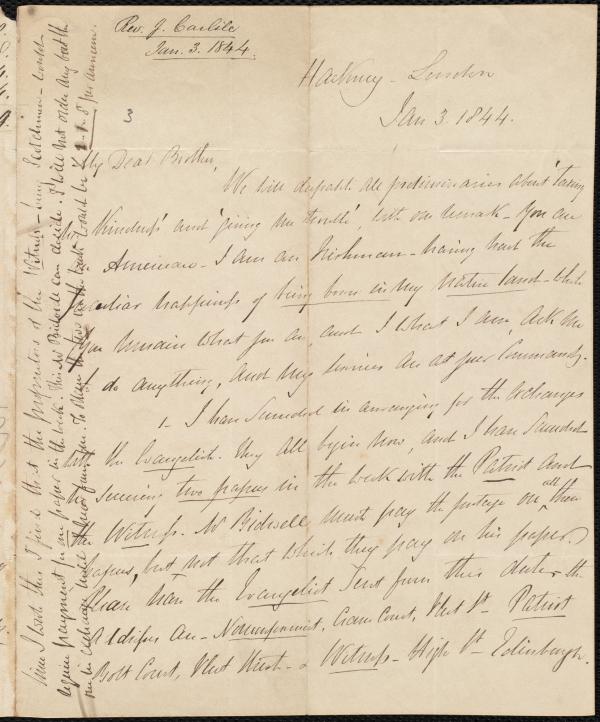 Rev. J. Carlile
Jan. 3. 1844.
Hackney - London
Jan 3. 1844.
3
My Dear Brother,
We will dispatch all preliminaries about 'taking
kindness' and 'giving me trouble', with one remark - You are
American - I am an Irishman - having had the
peculiar happiness of being born in my native land - While
you remain what you are, and I what I am, ask me
to do anything, and my services are at your Commands.
1 - I have succeeded in arranging for the exchanges
with the Evangelist. They all begin now, and I have succeeded
in securing two papers in the week with the Patriot and
the Witness. Mr Bidwell must pay the postage on all these
papers, but not that which they pay on his paper.
Please have the Evangelist sent from this date - the
Addresses are - Nonconformist, Crane Court, Fleet St - Patriot
Bolt Court, Fleet Street - & Witness - High St - Edinburgh.
Since I wrote this I find that the proprietors of the Witness - being Scotchmen - would
require payment for one paper in the week. This Mr Bidwell can decide. I will not order any but the
one in exchange until I hear from you. To them the two in the week would be £ per annum.